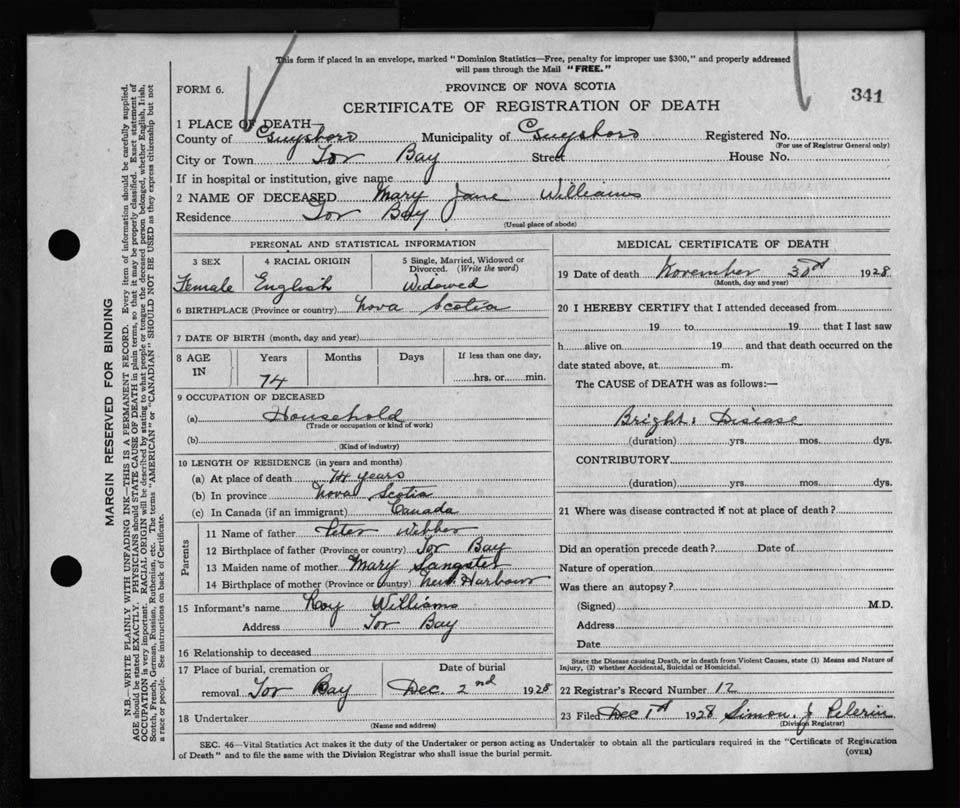 This form if placed in an envelope, marked "Dominion Statistics—Free, penalty for improper use $300," and properly addressed
will pass through the Mail "FREE."
FORM 6.
PROVINCE OF NOVA SCOTIA
341
CERTIFICATE OF REGISTRATION OF DEATH
1 PLACE OF DEATH
County of Guysboro Municipality of Guysboro Registered No.
(For use of Registrar General only)
City or Town Tor Bay Street House No.
If in hospital or institution, give name
2 NAME OF DECEASED Mary Jane Williams
Residence Tor Bay
(Usual place of abode)
MARGIN RESERVED FOR BINDING
N.B.—WRITE PLAINLY WITH UNFADING INK—THIS IS A PERMANENT RECORD. Every item of information should be carefully supplied.
AGE should be stated EXACTLY. PHYSICIANS should STATE CAUSE OF DEATH in plain terms, so that it may be properly classified. Exact statement of
OCCUPATION is very important. RACIAL ORIGIN will be described by stating to what people or tongue the deceased person belonged, whether English, Irish,
Scotch, French, German, Russian, Ruthenian, etc. The terms "AMERICAN" or "CANADIAN" SHOULD NOT BE USED as they express citizenship but not
a race or people. See instructions on back of Certificate.
PERSONAL AND STATISTICAL INFORMATION
3 SEX
Female
4 RACIAL ORIGIN
English
5 Single, Married, Widowed or
Divorced. (Write the word)
Widowed
6 BIRTHPLACE (Province or country) Nova Scotia
7 DATE OF BIRTH (month, day and year)
8 AGE IN Years Months Days If less than one day,
74 hrs. or min.
9 OCCUPATION OF DECEASED
(a) Household
(Trade or occupation or kind of work)
(b)
(Kind of industry)
10 LENGTH OF RESIDENCE (in years and months)
(a) At place of death 74 years
(b) In province Nova Scotia
(c) In Canada (if an immigrant) Canada
Parents
11 Name of father Peter Webber
12 Birthplace of father (Province or country) Tor Bay
13 Maiden name of mother Mary Sangster
14 Birthplace of mother (Province or country) New Harbour
15 Informant's name Roy Williams
Address Tor Bay
16 Relationship to deceased
17 Place of burial, cremation or
removal Tor Bay
Date of burial
Dec. 2nd 1928
18 Undertaker
(Name and address)
MEDICAL CERTIFICATE OF DEATH
19 Date of death November 30th 1928
(Month, day and year)
20 I HEREBY CERTIFY that I attended deceased from
19 to 19 that I last saw
h alive on 19 and that death occurred on the
date stated above, at m.
The CAUSE of DEATH was as follows:—
Brights Disease
(duration) yrs. mos. dys.
CONTRIBUTORY
(duration) yrs. mos. dys.
21 Where was disease contracted if not at place of death?
Did an operation precede death? Date of
Nature of operation
Was there an autopsy?
(Signed) M.D.
Address
Date
State the Disease causing Death, or in death from Violent Causes, state (1) Means and Nature of
Injury, (2) whether Accidental, Suicidal or Homicidal.
22 Registrar's Record Number 12
23 Filed Dec 1st 1928 Simon J Pelerin
(Division Registrar)
SEC. 46—Vital Statistics Act makes it the duty of the Undertaker or person acting as Undertaker to obtain all the particulars required in the "Certificate of Registration
of Death" and to file the same with the Division Registrar who shall issue the burial permit.
(OVER)